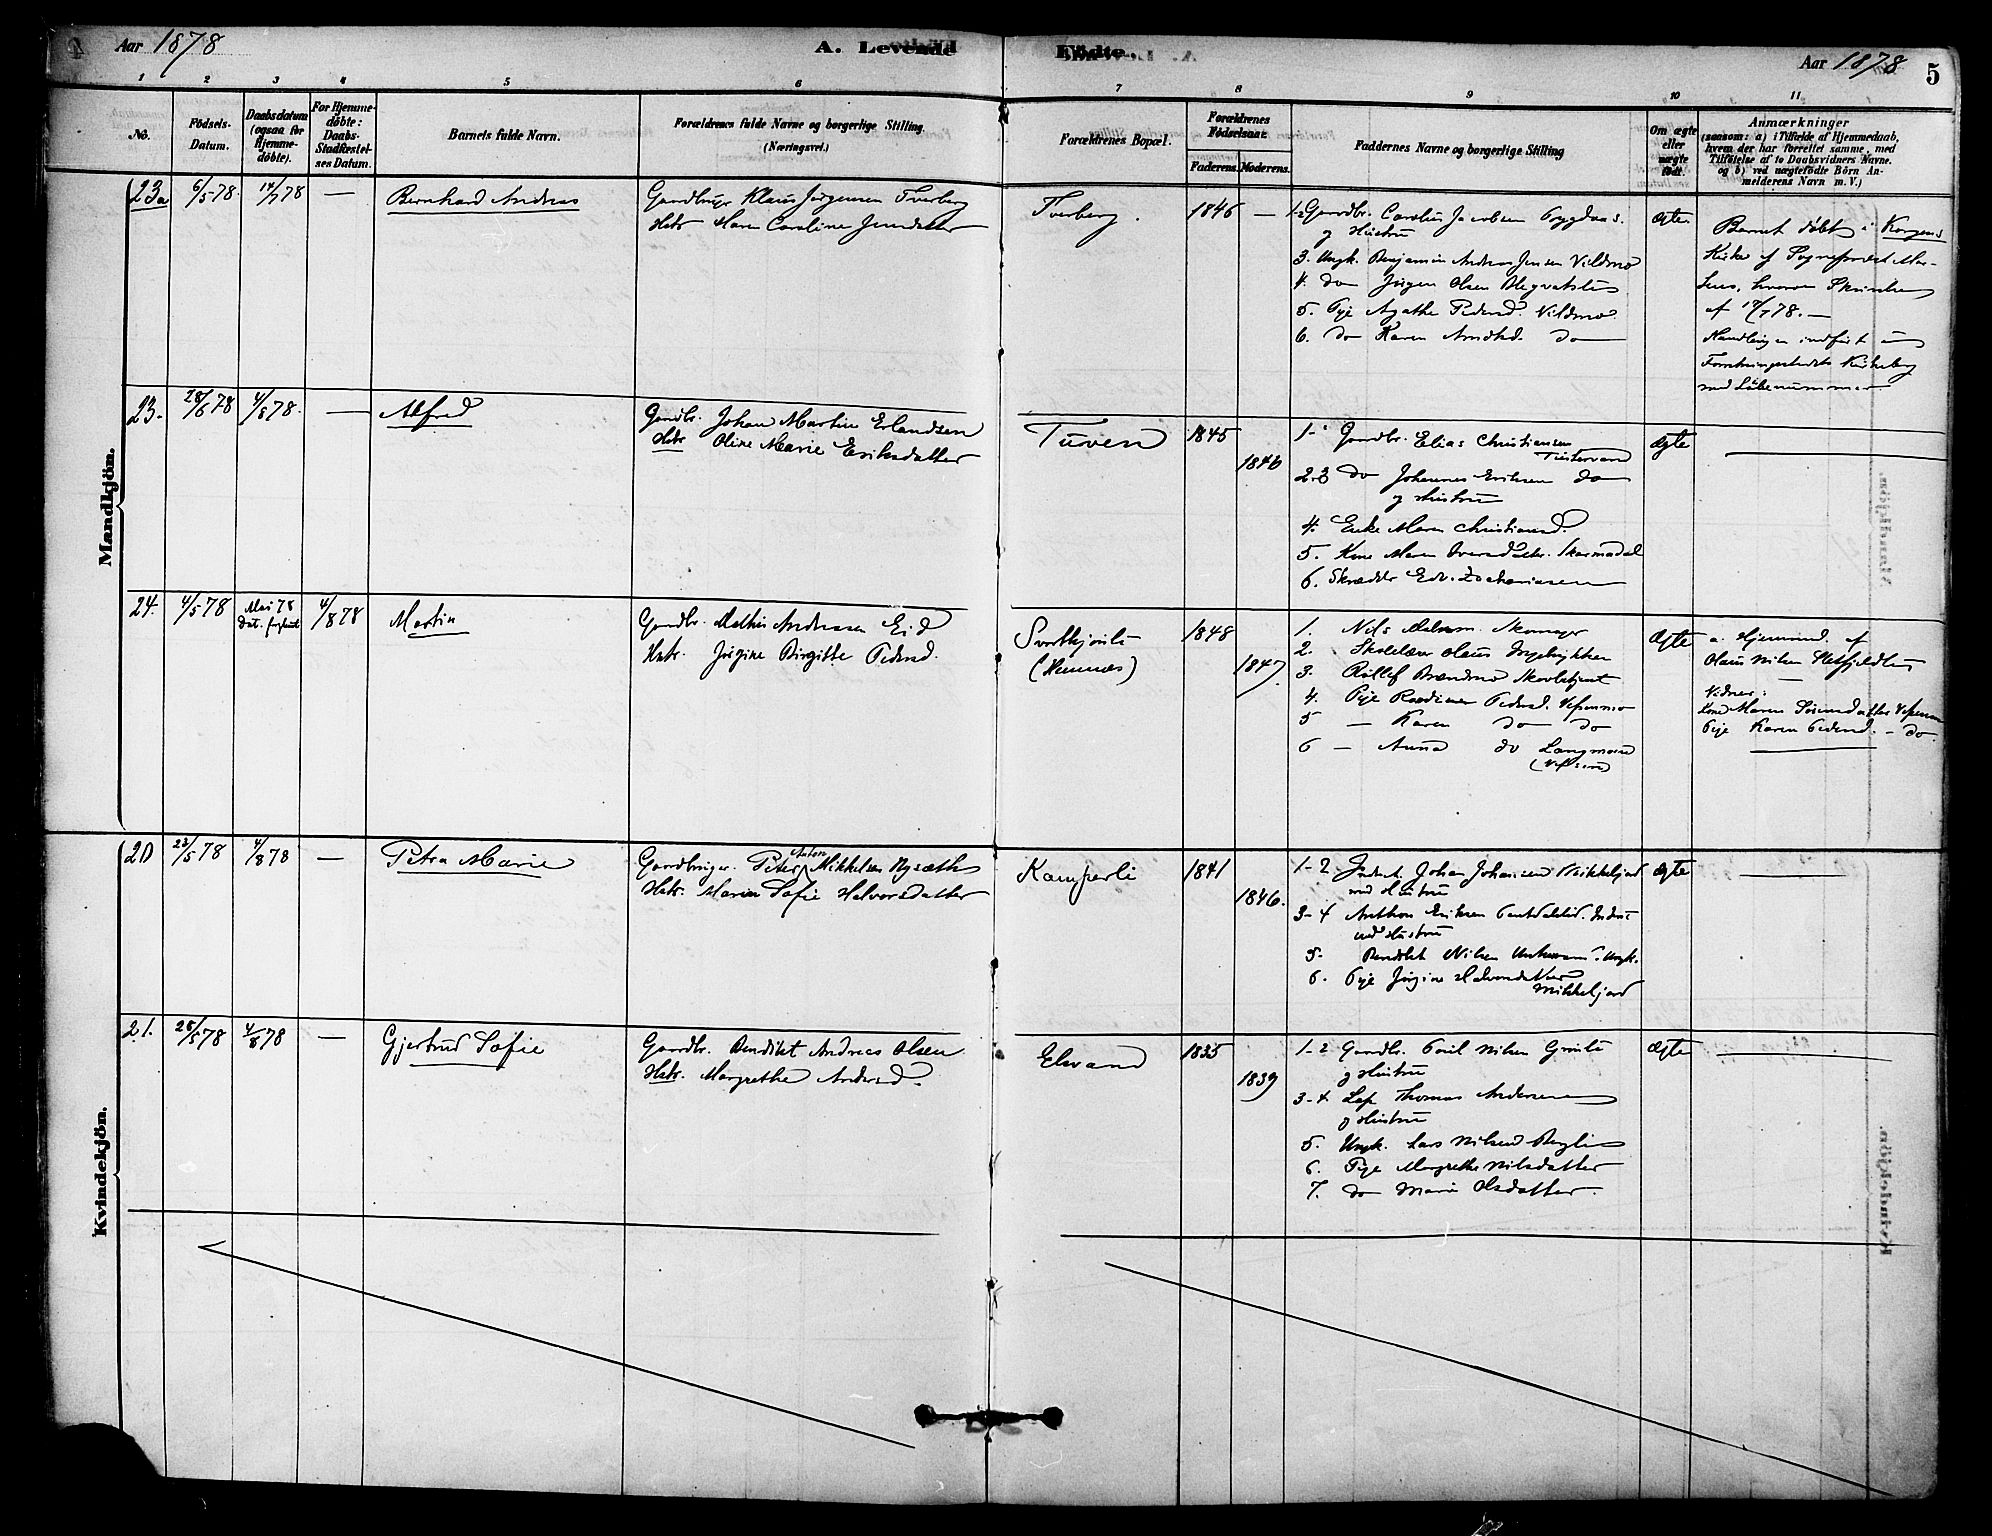 Aar 1878
A. Levende Fødte.
Aar 1878
5
1 2 3 4 5 6 7 8 9 10 11
No.
Fødsels-
Datum.
Daabsdatum
(ogsaa for
Hjemme-
døbte).
For Hjemme-
døbte:
Daabs-
Stadfæstel-
ses Datum.
Barnets fulde Navn.
Forældrenes fulde Navne og borgerlige Stilling.
(Næringsvei.)
Forældrenes Bopæl.
Forældrenes
Fødselsaar.
Faderens. Moderens.
Faddernes Navne og borgerlige Stilling
Om ægte
eller
uægte
født.
Anmærkninger
(saasom: a) i Tilfælde af Hjemmedaab,
hvem der har forrettet samme, med
Tilføielse af to Daabsvidners Navne.
og b) ved uægtefødte Børn An-
melderens Navn m. V.)
Mandkjön.
23a 6/5 78. 14/7 78 — Bernhard Andreas
Gaardbruger Klaus Jørgensen Tverberg
Hstr Maren Caroline Jensdatter
Tverberg.
1846 —
1-2 Gaardbr. Carolius Jacobsen Bygdaas.
og Hustru
3. Ungk. Benjamin Andreas Jensen Vildmo
4. do Jørgen Olsen
5. Pige Agathe Pedersd. Vildmo.
6. do Karen Arntsd. do
Ægte
Barnet døbt i Korgens
Kirke af Sogneprest
af 14/7 78. —
Handlingen indført i
Forretningsstedets Kirkebog
med Løbenummer
23. 28/6 78 4/8 78. — Alfred
Gaardbr. Johan Martin Erlandsen
Hstr Oline Marie Eriksdatter
Tuven
1845
1846
1- Gaardbr. Elias Christiansen
2-3 do Johannes Eriksen do
og Hustru
4. Enke Maren Christiansd.
5. Kone Maren Iversdatter. Skarmodal
6. Skrædder Edv. Zachariasen
Ægte —
24. 4/5 78 Mai 78
4/8 78 Martin
Gaardbr. Mathis Andreasen Eid
Hstr. Jørgine Birgitte Pedersd.
(Hemnæs)
1848
1847.
1. Nils Skomager
2. Skolelærer Olaus
3.
4. Pige Pedersd.
5 — Karen do do
6 — Anna do
Ægte
a. Hjemmed. af
Olaus Nilsen
Vidner:
Kone Maren
Pige Karen Pedersd. — do.
Kvindekjön.
20 23/5 78 4/8 78 — Petra Marie
Gaardbruger. Peter Anton Mikkelsen
Hstr. Maren Sofie Halvorsdatter
Kamperli
1841
1846.
1-2 Johan Johansen
med Hustru
3-4 Anthon Eriksen
med Hustru
5. Bendikt Nilsen Ungk.
6. Pige Jørgine Halvorsdatter
Ægte —
21. 28/5 78 4/8 78 — Gjertrud Sofie
Gaardbr. Bendikt Andreas Olsen
Hstr. Margrethe Andersd.
Elsvand
1835
1839
1-2 Gaardbr. Poul Nilsen
og Hustru
3-4 Lap Thomas Andersen
og Hustru
5. Ungk. Lars Nilsen
6. Pige Margrethe Nilsdatter
7. do Marie Olsdatter.
Ægte —